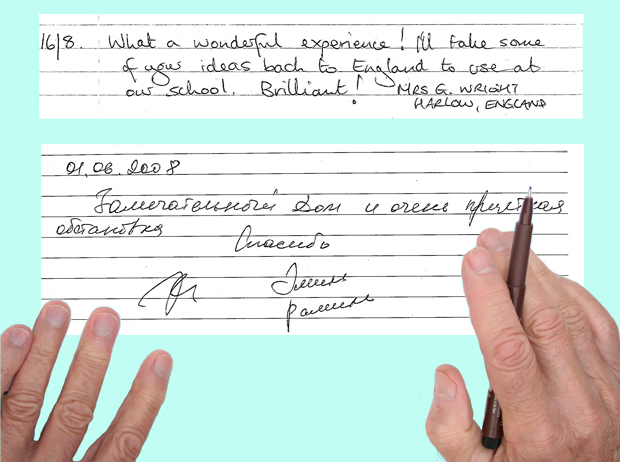 16/8. What a wonderful experience! I'll take some
of your ideas back to England to use at
our school. Brilliant! MRS G. WRIGHT
HARLOW, ENGLAND
01.06.2008
Замечательный Дом и очень приятная
обстановка
Спасибо